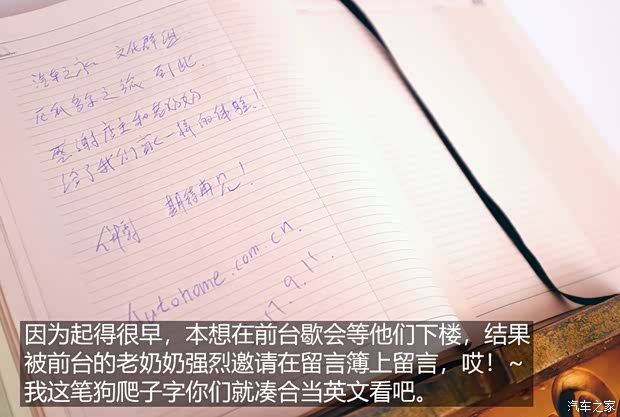 汽车之家 文化群组
感谢店主和老奶奶
给了我们家一样的体验!
期待再见!
Autohome.com.cn.
因为起得很早，本想在前台歇会等他们下楼，结果
被前台的老奶奶强烈邀请在留言簿上留言，哎！~
我这笔狗爬子字你们就凑合当英文看吧。
汽车之家